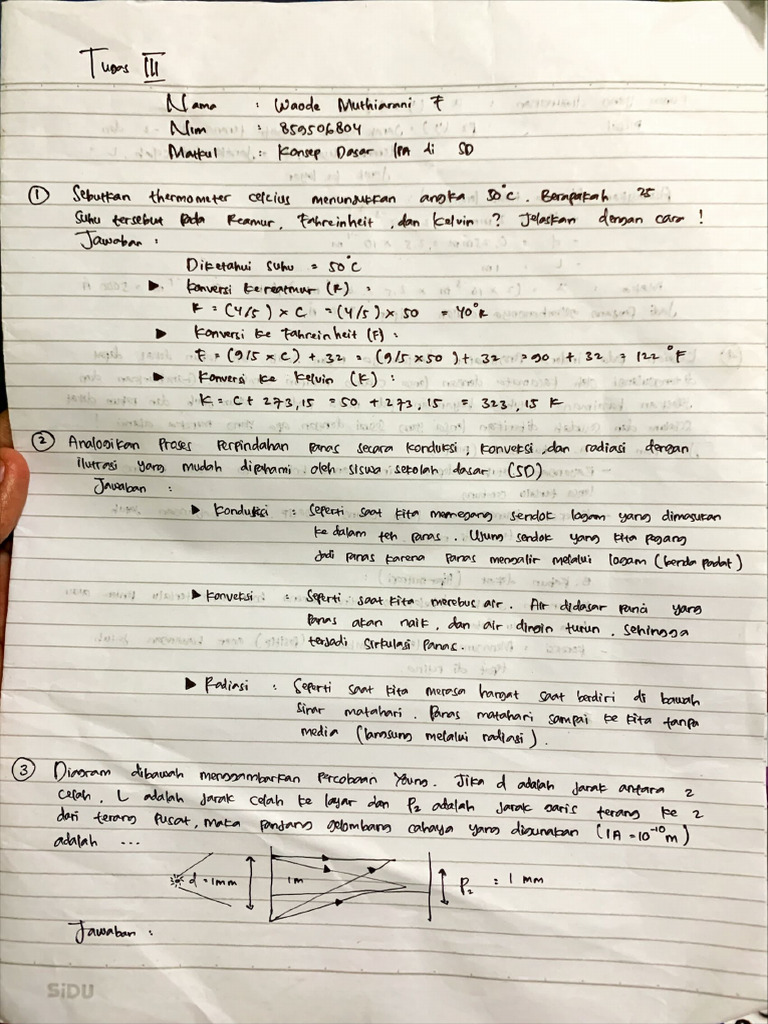 Tugas III
Nama : Waode Muthiarani F
Nim : 859506804
Matkul : Konsep Dasar IPA di SD
① Sebutkan thermometer celcius menunjukkan angka 50°C. Berapakah 25
Suhu tersebut pada Reamur, Fahreinheit, dan Kelvin? Jelaskan dengan cara!
Jawaban :
Diketahui suhu = 50°C
▶ Konversi ke reatmur (R) :
R = (4/5) × C = (4/5) × 50 = 40°R
▶ Konversi ke Fahreinheit (F) :
F = (9/5 × C) + 32 = (9/5 × 50) + 32 = 90 + 32 = 122 °F
▶ Konversi ke Kelvin (K) :
K = C + 273,15 = 50 + 273,15 = 323,15 K
② Analogikan Proses Perpindahan Panas secara Konduksi, Konveksi, dan radiasi dengan
ilutrasi yang mudah dipahami oleh siswa sekolah dasar (SD)
Jawaban :
▶ Konduksi : Seperti saat kita memegang sendok logam yang dimasukan
ke dalam teh panas. Ujung sendok yang kita pegang
jadi panas karena panas mengalir melalui logam (benda padat)
▶ Konveksi : : Seperti saat kita merebus air. Air didasar panci yang
panas akan naik, dan air dingin turun, sehingga
terjadi sirkulasi panas.
▶ Radiasi : Seperti saat kita merasa hangat saat berdiri di bawah
sinar matahari. Panas matahari sampai ke kita tanpa
media (langsung melalui radiasi).
③ Diagram dibawah menggambarkan percobaan Young. Jika d adalah jarak antara 2
celah, L adalah jarak celah ke layar dan P₂ adalah jarak garis terang ke 2
dari terang pusat, maka panjang gelombang cahaya yang digunakan (1A = 10⁻¹⁰ m)
adalah ...
d = 1mm 1m P₂ = 1 mm
Jawaban :
SiDU